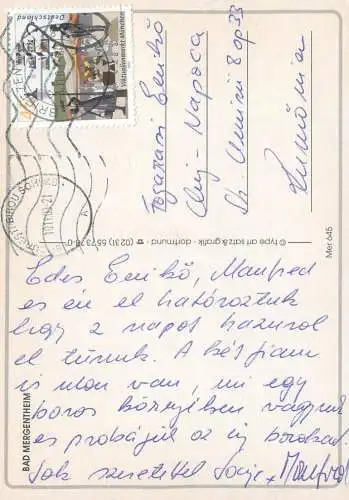 Deutschland
Viktualienmarkt München
BRETTEN
Fogarasi Enikő
Cluj-Napoca
Str. Unirii 8 ap 33
România
© type art satz & grafik · dortmund · ☎ (02 31) 65 73 78-0
Mer 645
BAD MERGENTHEIM
Edes Enikő, Manfred
es én el határoztuk
hogy 2 napot hazurol
el tűnük. A két fiam
is uton van, mi egy
boros környéken vagyunk
es probáljuk az új borokat.
Sok szeretettel Manfred